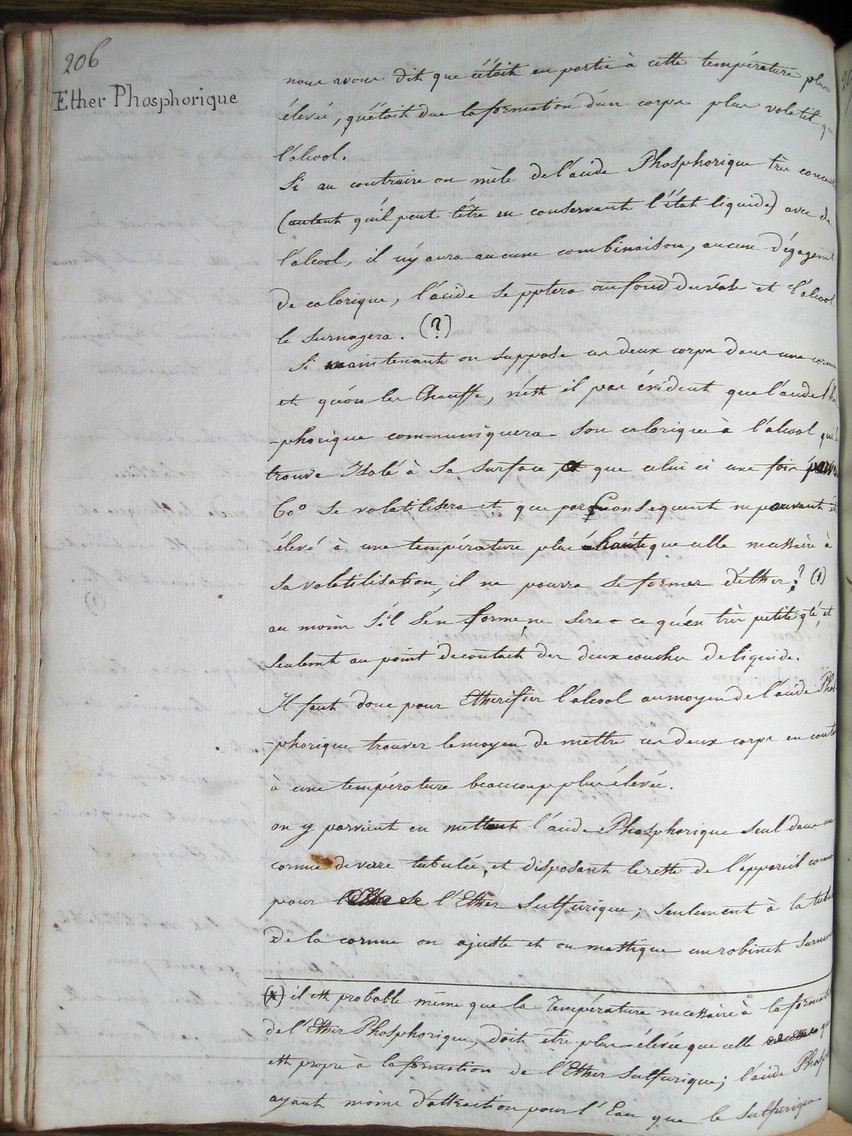 206
Ether Phosphorique
nous avons dit que c'étoit en partie à cette température plus
élevée, qu'étoit due la formation d'un corps plus volatil que
l'alcool.
Si au contraire on mêle de l'acide Phosphorique très concen
(autant qu'il peut l'être en conservant l'état liquide) avec de
l'alcool, il n'y aura aucune combinaison, aucun dégagemt
de calorique, l'acide se pptera au fond du vase et l'alcool
le surnagera. (?)
Si maintenant on suppose ces deux corps dans une cornue
et qu'on les chauffe, n'est il pas évident que l'acide Pho
-phorique communiquera son calorique à l'alcool qui
trouve Isolé à sa surface, que celui ci une fois
60° se volatilisera et que par conséquent ne pouvant être
élevé à une température plus haute que celle necessaire à
sa volatilisation, il ne pourra se former d'éther? (1)
au moins s'il s'en forme ne sera-ce qu'en très petite qté, et
seulemt au point de contact des deux couches de liquide.
Il faut donc pour Etherifier l'alcool au moyen de l'acide Phos
-phorique trouver le moyen de mettre ces deux corps en conta
à une température beaucoup plus élevée.
on y parvient en mettant l'acide Phosphorique seul dans une
cornue de verre tubulée, et disposant le reste de l'appareil comme
pour l'Ether Sulfurique; seulement à la tubul
de la cornue on ajuste et on mastique un robinet surmon
(1) il est probable même que la Température necessaire à la formati
de l'Ether Phosphorique, doit être plus élevée que celle qui
est propre à la formation de l'Ether Sulfurique; l'acide Phosph
ayant moins d'attraction pour l'Eau que le Sulfurique